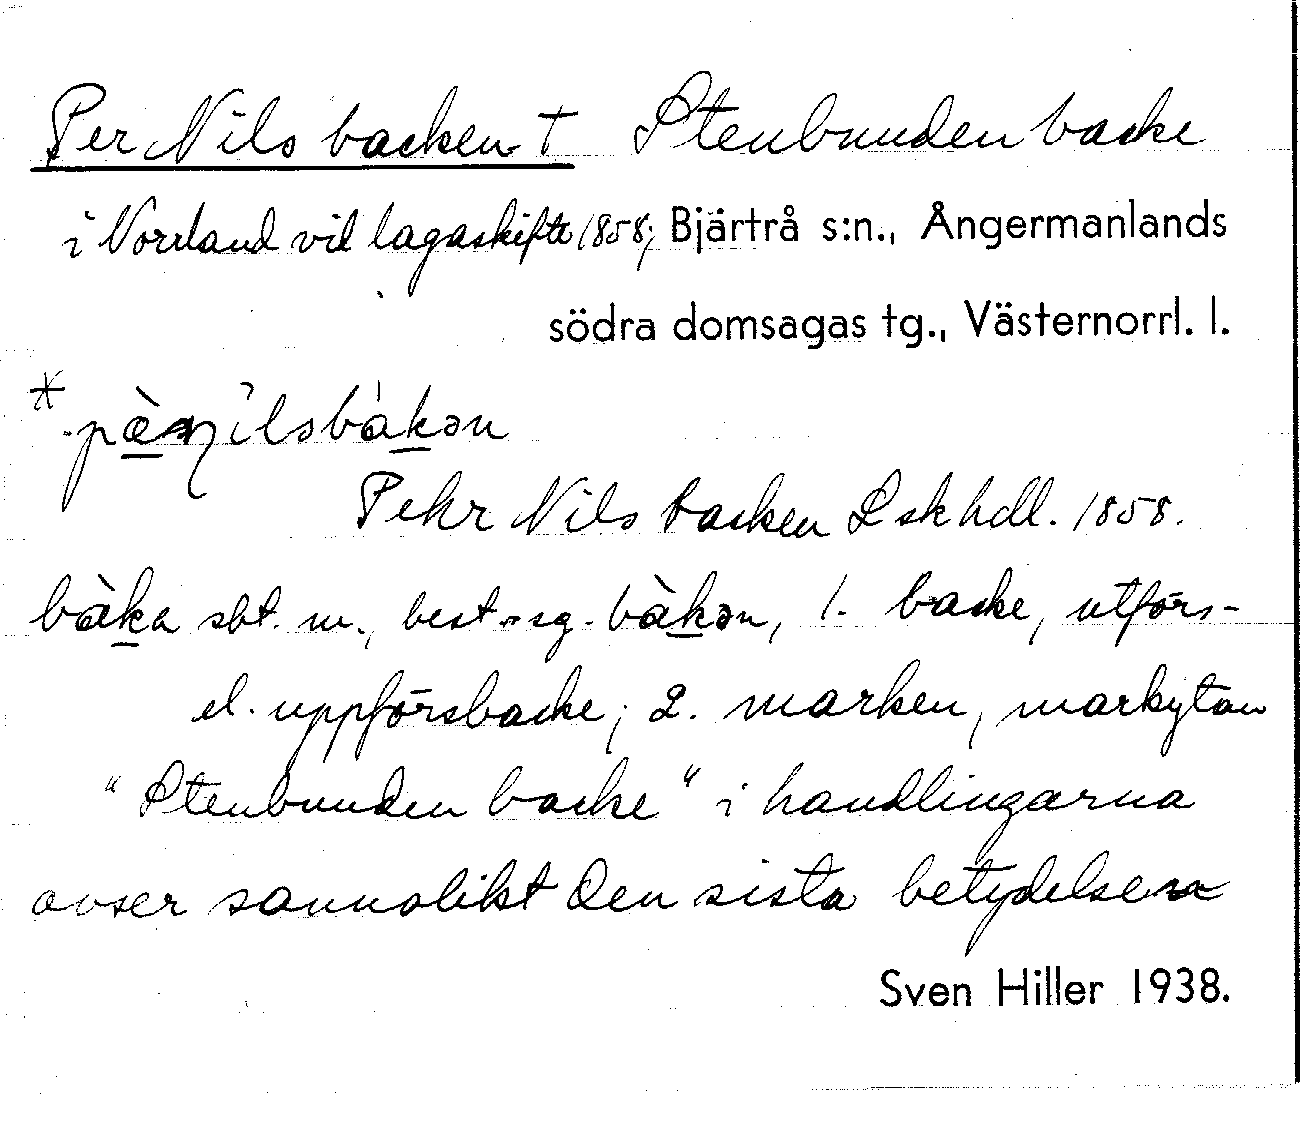 Per Nils backen † Stenbunden backe
i Norrland vid lagaskifte 1858; Bjärtrå s:n., Ångermanlands
södra domsagas tg., Västernorrl. l.
* pæ̀ɳilsbàkən
Pehr Nils backen Lskhdl. 1858.
bàka sbt. m., best. sg. bàkən, 1. backe, utförs-
el. uppförsbacke; 2. marken, markytan
"Stenbunden backe" i handlingarna
avser sannolikt den sista betydelsen
Sven Hiller 1938.